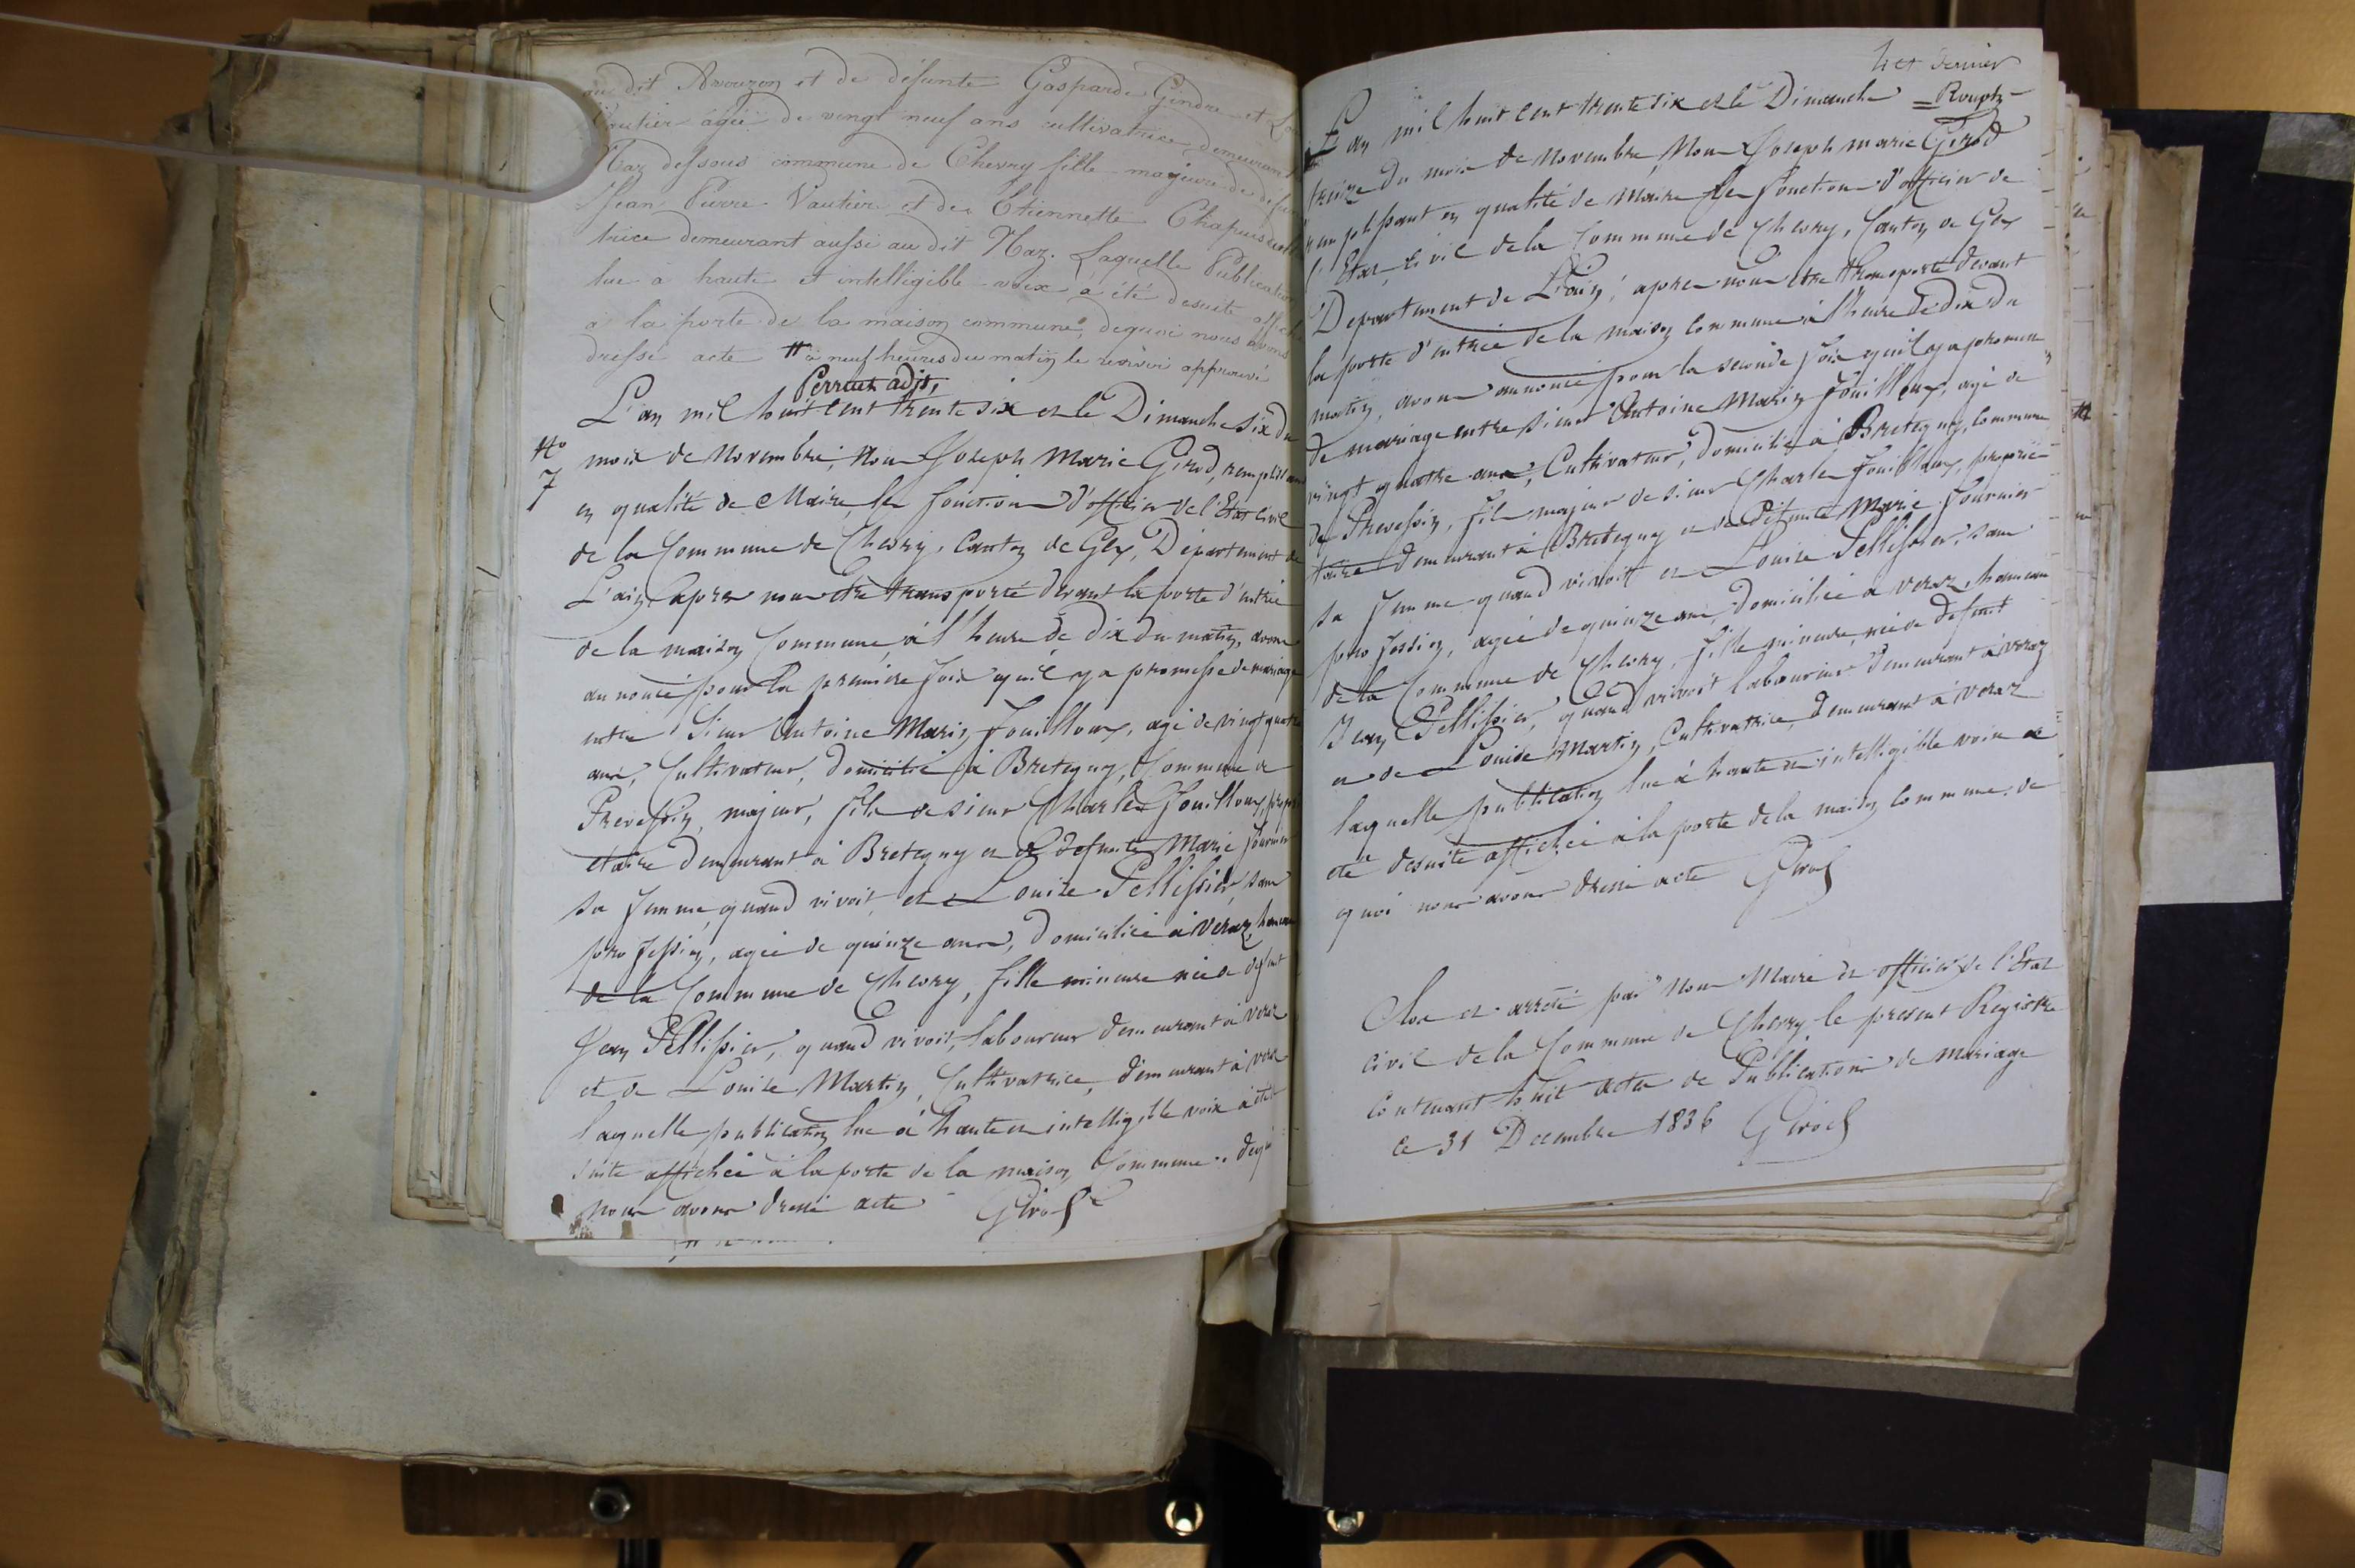 au dit Avouzon et de défunte Gasparde Gendre et
Vautier agée de vingt neuf ans cultivatrice demeurant
Naz dessous commune de Chevry fille majeure de défunt
Jean Pierre Vautier et de Etiennette Chapuis
trice demeurant aussi au dit Naz. Laquelle Publication
lue a haute et intelligible voix a été desuite affichée
à la porte de la maison commune, dequoi nous avons
dressé acte # à neuf heures du matin le renvoi approuvé
Perreux adjt,
L'an mil huit cent trente six et le Dimanche six du
No
7
mois de Novembre, Nous Joseph Marie Girod, remplissant
en qualité de Maire les fonctions d'officier de l'Etat civil
de la Commune de Chevry, Canton de Gex, Département de
L'ain, après nous etre transporté devant la porte d'entrée
de la maison Commune, à l'heure de dix du matin, avons
annoncé pour la premiere fois qu'il y a promesse de mariage
entre Sieur Antoine Marin Fouilloux, agé de vingt quatre
ans, Cultivateur, domicilié à Bretegny, Commune de
Prevessin, majeur, fils de sieur Charles Fouilloux, propri
etaire demeurant à Bretegny et de defunte Marie fournier
sa femme, quand vivoit, et Louise Pellissier, sans
profession, agée de quinze ans, domiciliée à Veraz, hameau
de la Commune de Chevry, fille mineure née de defunt
Jean Pellissier, quand vivoit, laboureur demeurant à Veraz
et de Louise Martin, Cultivatrice, demeurant à Veraz
laquelle publication lue à haute et intelligible voix a été de
suite affichée à la porte de la maison Commune. dequoi
nous avons dressé acte Girod
4 et dernier
= Rouph
L'an mil huit cent trente six et le Dimanche
treize du mois de Novembre, Nous Joseph marie Girod
remplissant en qualité de Maire les fonctions d'officier de
l'Etat civil de la Commune de Chevry, Canton de Gex
Departement de L'ain, apres nous etre transporté devant
la porte d'entrée de la maison Commune à l'heure de dix du
matin, avons annoncé pour la seconde fois qu'il y a promesse
de mariage entre sieur Antoine Marin Fouilloux, agé de
vingt quatre ans, Cultivateur, domicilié à Bretegny, Commune
de Prevessin, fils majeur de sieur Charles Fouilloux, proprié
taire demeurant à Bretegny et de defunte Marie fournier
sa femme quand vivoit et Louise Pellissier, sans
profession, agée de quinze ans, domiciliée à Veraz, hameau
de la Commune de Chevry, fille mineure, née de defunt
Jean Pellissier, quand vivoit laboureur demeurant à Veraz
et de Louise Martin, Cultivatrice, demeurant à Veraz
laquelle publication lue à haute et intelligible voix a
été desuite affichée à la porte de la maison Commune. de
quoi nous avons dressé acte Girod
Clos et arreté par Nous Maire et officier de l'Etat
civil de la Commune de Chevry le present Registre
contenant huit actes de Publications de mariage
ce 31 Decembre 1836 Girod